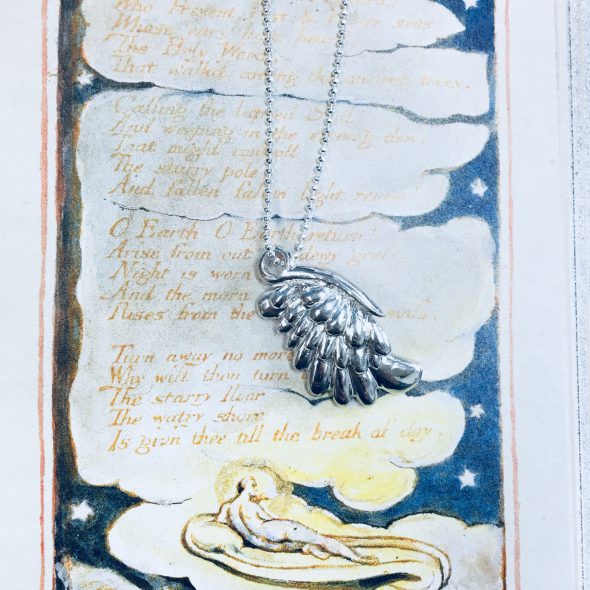 Who Present,
Whose ears have
The Holy Word
That walk'd among the ancient trees.
Calling the lapsed Soul
And weeping in the evening dew:
That might controll
The starry pole
And fallen fallen light renew!
O Earth O Earth return!
Arise from out dewy
Night is worn
And the morn
Rises from the
Turn away no more
Why wilt thou turn
The starry floor
The watry shore
Is givn thee till the break of day.